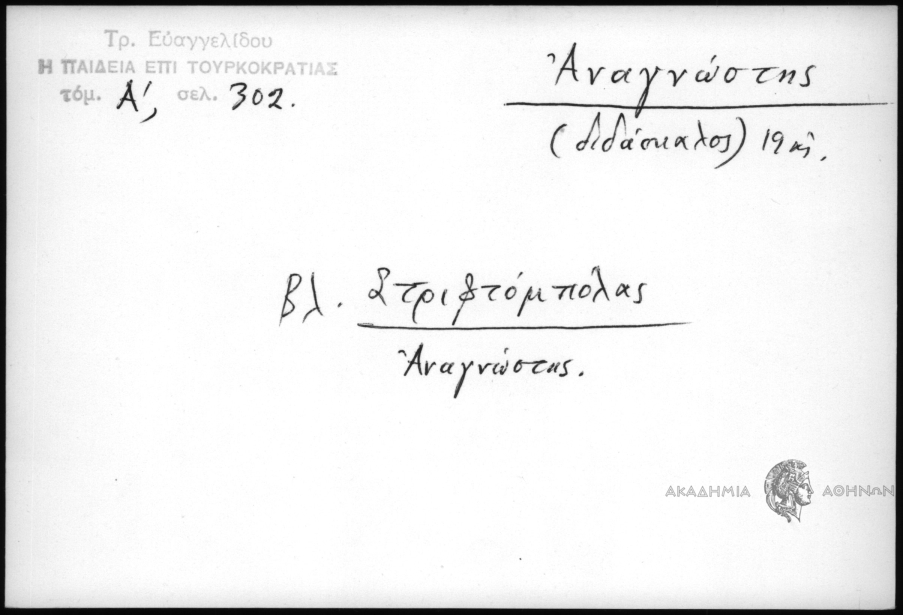 Τρ. Εὐαγγελίδου
Η ΠΑΙΔΕΙΑ ΕΠΙ ΤΟΥΡΚΟΚΡΑΤΙΑΣ
τόμ. Α', σελ. 302.
Ἀναγνώστης
(διδάσκαλος) 19 αἰ.
βλ. Στριφτόμπολας
Ἀναγνώστης.
ΑΚΑΔΗΜΙΑ ΑΘΗΝΩΝ